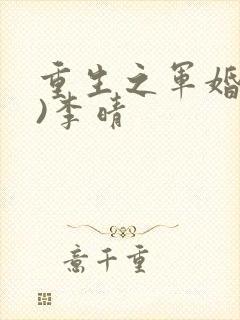 重生之军婚
)李晴
意千重